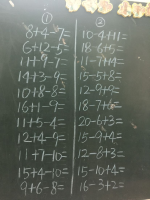 ①
8+4-7=
6+12-5=
11+9-7=
14+3-9=
10+8-8=
16+1-9=
11+5-4=
12+4-9=
11+7-10=
15+4-10=
9+6-8=
②
10-4+11=
18-6+5=
11-7+4=
15-5+8=
12-9+9=
18-7+6=
20-6+3=
15-9+4=
12-8+3=
15-10+4=
16-3+2=